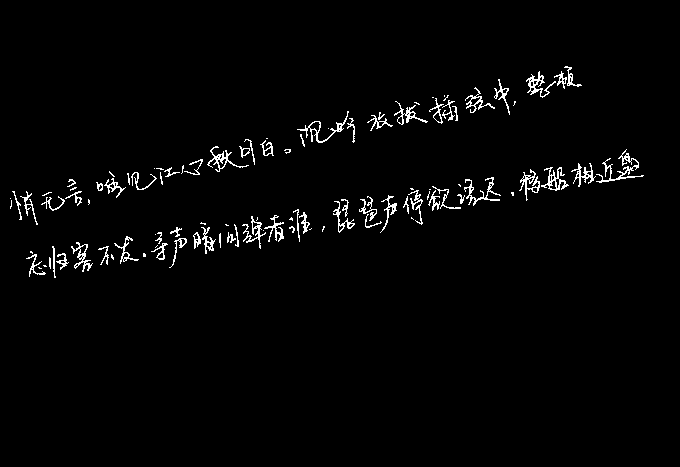 悄无言,唯见江心秋月白。沉吟放拨插弦中,整顿
忘归客不发.寻声暗问弹者谁,琵琶声停欲语迟.移船相近邀